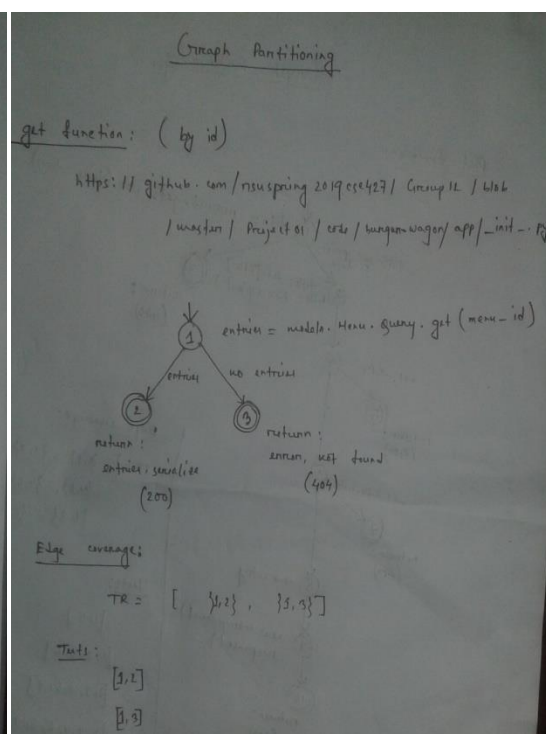 Graph Partitioning
get function: (by id)
https://github.com/nsuspring2019cse427/Group12/blob
/master/Project01/code/burger-wagon/app/_init_.py
1
entries = models.Menu.Query.get(menu_id)
entries
no entries
2
3
return:
entries.serialize
(200)
return:
error, not found
(404)
Edge coverage:
TR = [ {1,2}, {1,3} ]
Tests:
[1,2]
[1,3]